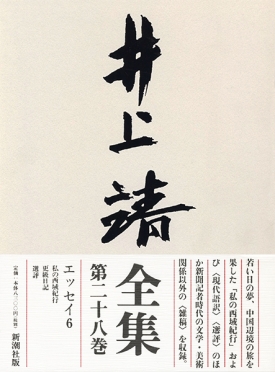 井上靖
全集
第二十八巻
若い日の夢、中国辺境の旅を
果した「私の西域紀行」およ
び〈現代語訳〉〈選評〉のほ
か新聞記者時代の文学・美術
関係以外の〈雑稿〉を収録。
エッセイ6
私の西域紀行
更級日記
選評
新潮社版